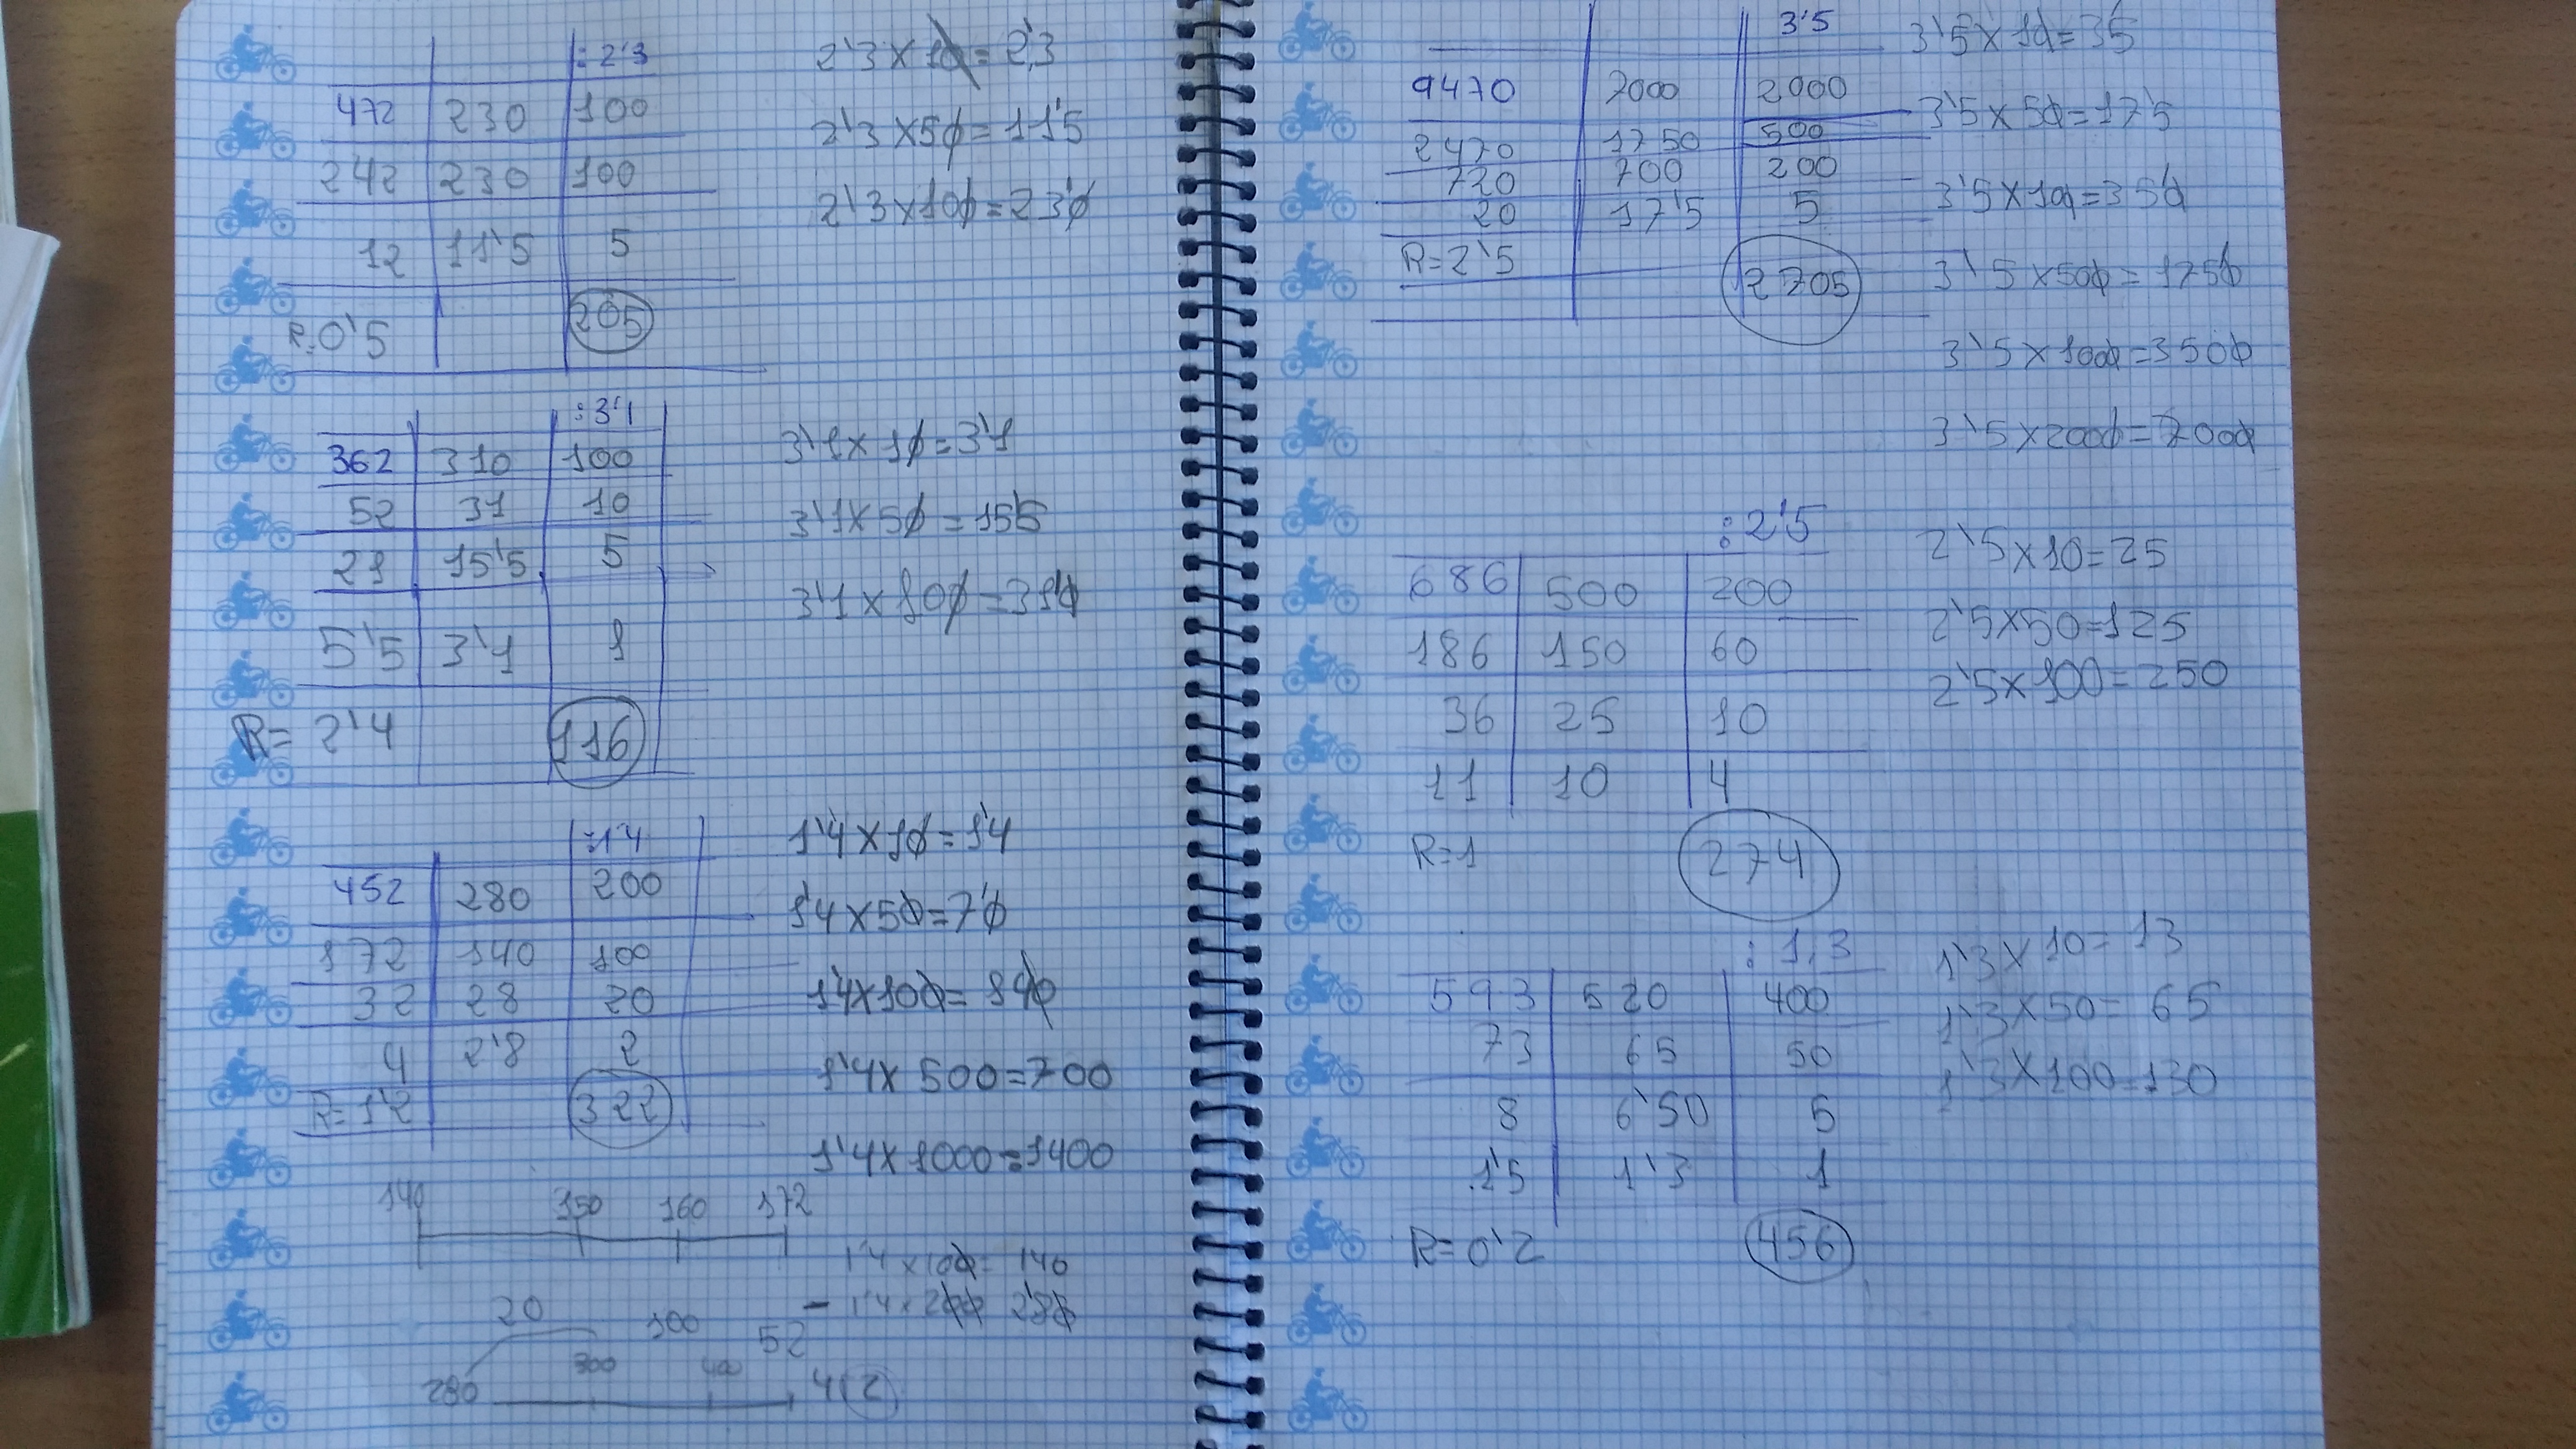 :2'3
472 230 100
242 230 100
12 11'5 5
R=0'5 205
2'3 x 10 = 2'3
2'3 x 50 = 11'5
2'3 x 100 = 23'0
:3'1
362 310 100
52 31 10
21 15'5 5
5'5 3'1 1
R= 2'4 116
3'1 x 10 = 3'1
3'1 x 50 = 155
3'1 x 100 = 310
:1'4
452 280 200
172 140 100
32 28 20
4 2'8 2
R= 1'2 322
1'4 x 10 = 1'4
1'4 x 50 = 7'0
1'4 x 100 = 140
1'4 x 500 = 700
1'4 x 1000 = 1400
140 150 160 172
1'4 x 100 = 140
- 1'4 x 200 280
20 100 52
280 300 400 4 2
3'5
9470 7000 2000
2470 1750 500
720 700 200
20 17'5 5
R=2'5 2705
3'5 x 10 = 35
3'5 x 50 = 17'5
3'5 x 100 = 350
3'5 x 500 = 1750
3'5 x 1000 = 3500
3'5 x 2000 = 7000
:2'5
686 500 200
186 150 60
36 25 10
11 10 4
R=1 274
2'5 x 10 = 25
2'5 x 50 = 125
2'5 x 100 = 250
: 1,3
593 520 400
73 65 50
8 6'50 5
1'5 1'3 1
R= 0'2 456
1'3 x 10 = 13
1'3 x 50 = 65
1'3 x 100 = 130